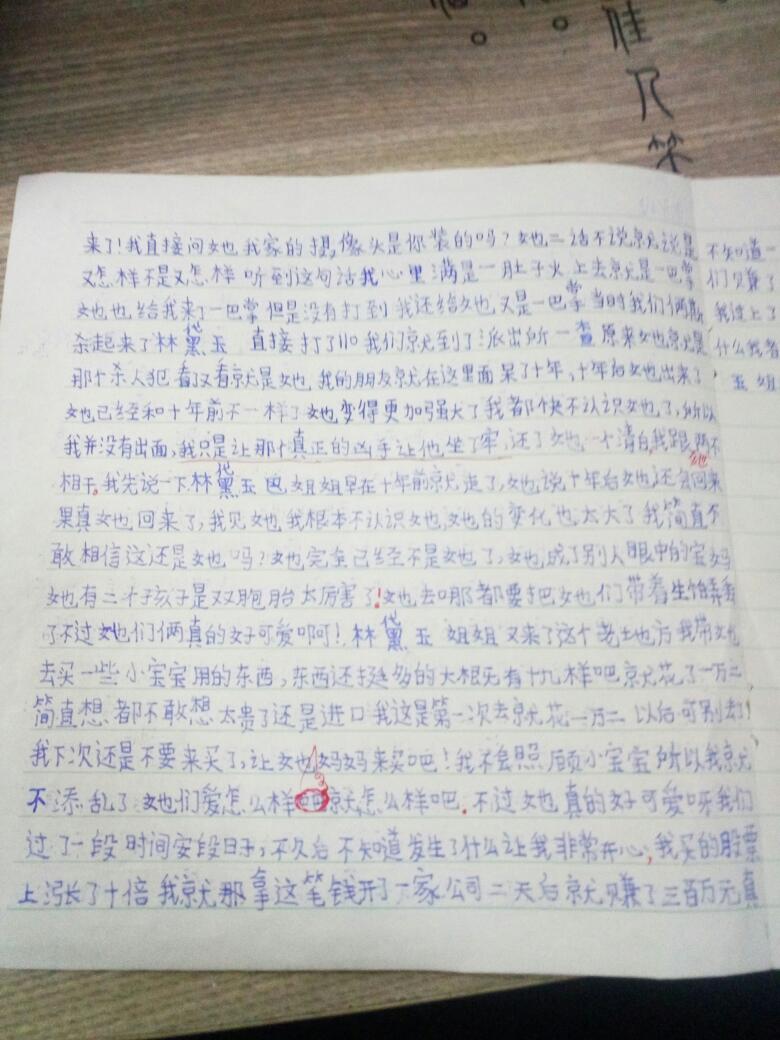 佳
不
笨
来了!我直接问她我家的摄像头是你装的吗?她二话不说就说是
又怎样不是又怎样 听到这句话我心里满是一肚子火上去就是一巴掌
她也给我来了一巴掌但是没有打到我还给她又是一巴掌当时我们俩
杀起来了林黛玉 直接打了110我们就到了派出所一查原来她就是
那个杀人犯看了又看就是她,我的朋友就在这里面呆了十年,十年后她出来了,
她已经和十年前不一样了她变得更加强大了我都快不认识她了,所以
我并没有出面,我只是让那个真正的凶手让他坐了牢,还了她一个清白,我跟她不
相干。我先说一下林黛玉巴姐姐早在十年前就走了,她说十年后她还会回来
果真她回来了,我见她我根本不认识她,她的变化也太大了我简直不
敢相信这还是她吗?她完全已经不是她了,她成了别人眼中的宝妈
她有二个孩子是双胞胎太厉害了!她去哪都要把她们带着生怕弄丢
了不过她们俩真的好可爱啊!林黛玉 姐姐又来了这个老土地方我带她
去买一些小宝宝用的东西,东西还挺多的大概有十九样吧就花了一万二
简直想都不敢想太贵了还是进口我这是第一次去就花一万二以后可别去了!
我下次还是不要来买了,让她妈妈来买吧!我不会照顾小宝宝所以我就
不添乱了她们爱怎么样就怎么样吧。不过她真的好可爱呀我们
过了一段时间安段日子,不久后不知道发生了什么让我非常开心,我买的股票
上涨长了十倍我就那拿这笔钱开了一家公司二天后就赚了三百万元真
不知道一
们又赚了
我过上了
什么我者
玉姐